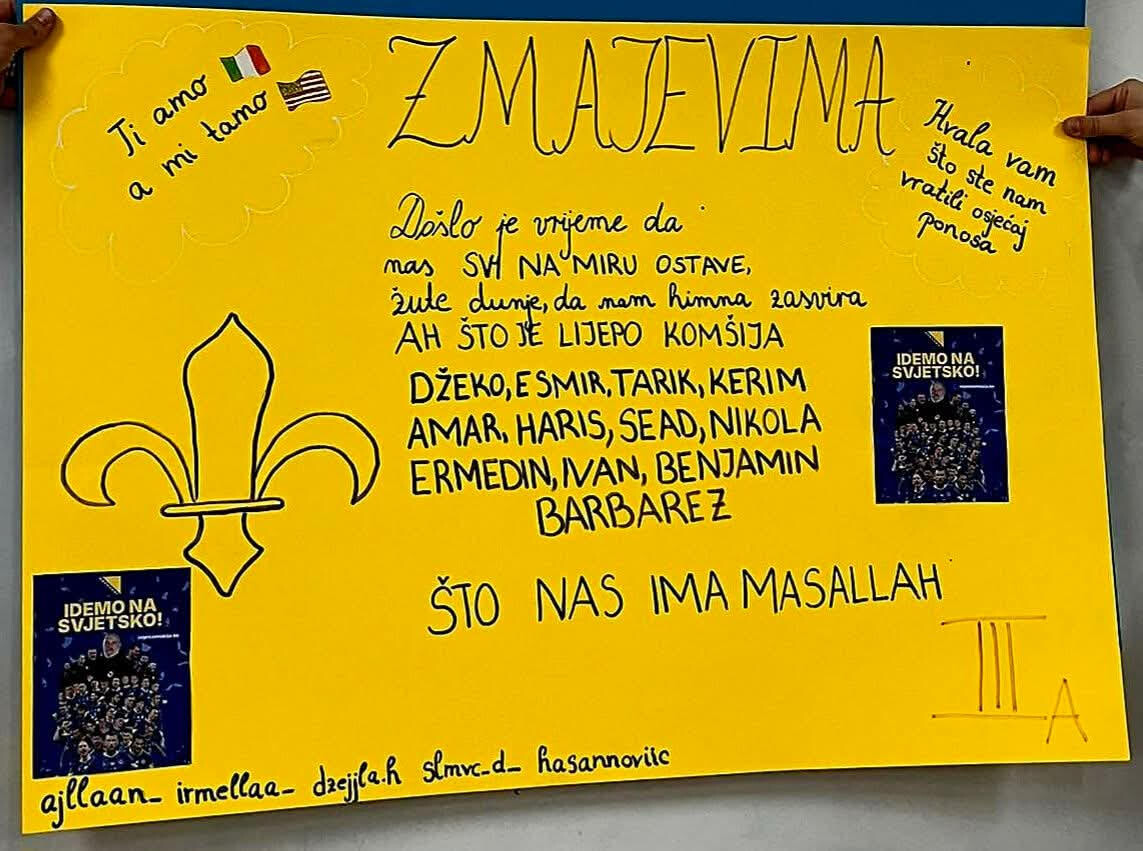 Ti amo
a mi tamo
ZMAJEVIMA
Hvala vam
što ste nam
vratili osjećaj
ponosa
Došlo je vrijeme da
nas SVI NA MIRU OSTAVE,
žute dunje, da nam himna zasvira
AH ŠTO JE LIJEPO KOMŠIJA
DŽEKO, ESMIR, TARIK, KERIM
AMAR, HARIS, SEAD, NIKOLA
ERMEDIN, IVAN, BENJAMIN
BARBAREZ
ŠTO NAS IMA MASALLAH
IDEMO NA
SVJETSKO!
IDEMO NA
SVJETSKO!
III A
ajllaan_ irmellaa_ dzejjla.h slmvc_d_ hasannoviic